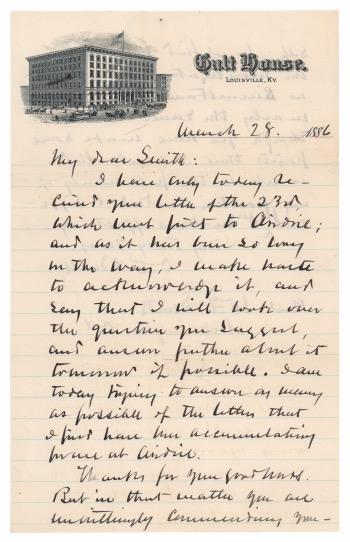 Galt House.
Louisville, Ky.
March 28. 1886
My dear Smith:
I have only today re-
ceived your letter of the 23rd
which went first to Airdrie;
and as it has been so long
on the way, I make haste
to acknowledge it, and
say that I will look over
the question you suggest,
and answer further about it
tomorrow if possible. I am
today trying to answer as many
as possible of the letters that
I find have been accumulating
for me at Airdrie.
Thanks for your good words.
But in that matter you are
unwittingly commending your-